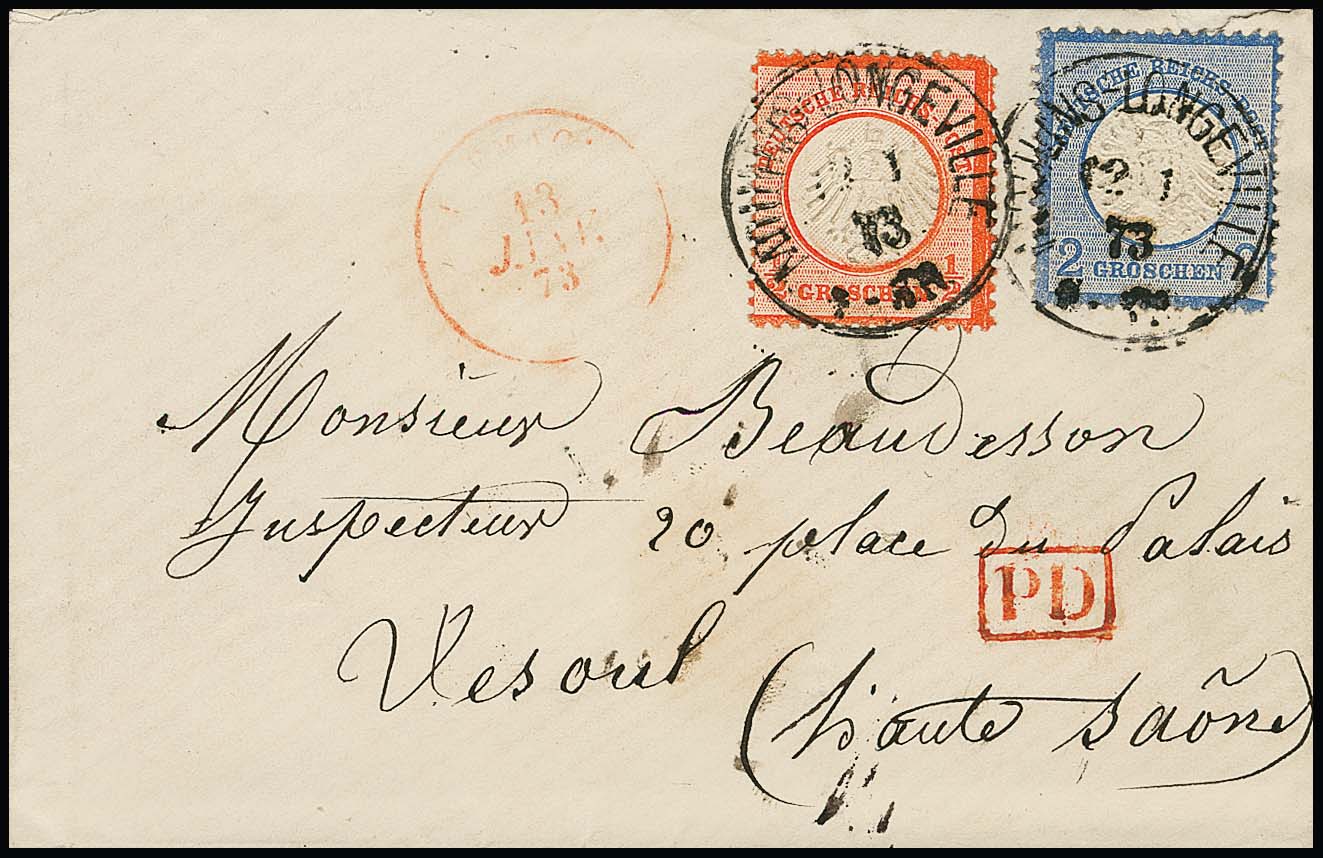 DEUTSCHE REICHS-POST
1/2 GROSCHEN 1/2
LONGEVILLE
73
DEUTSCHE REICHS-POST
2 GROSCHEN 2
LONGEVILLE
73
13
JANV.
73
Monsieur Beaudesson
Inspecteur 20 place du Palais
PD
Vesoul
(haute Saône)